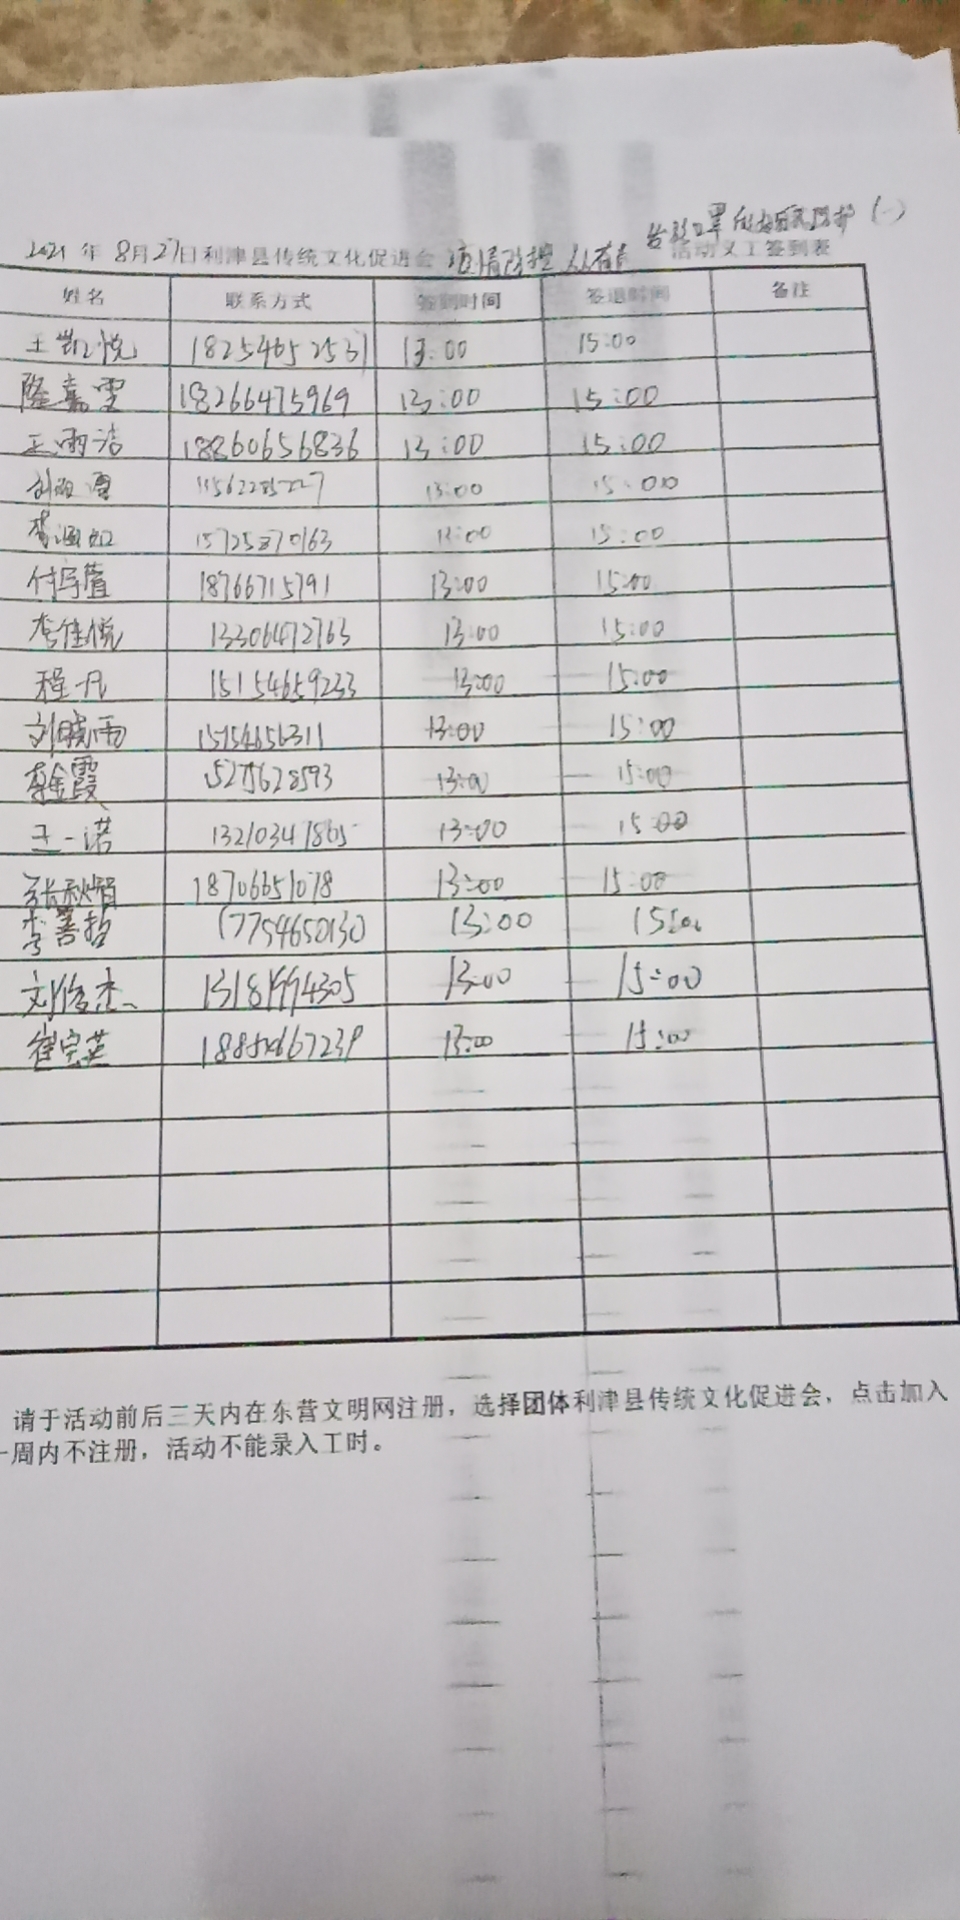 2021年8月27日利津县传统文化促进会 疫情防控 人人有责 活动义工签到表
(一)
姓名 联系方式 签到时间 签退时间 备注
王凯悦 18254652531 13:00 15:00
隆嘉雯 18266475969 13:00 15:00
王雨洁 18860656836 13:00 15:00
13:00 15:00
15725870163 13:00 15:00
付写萱 18766715791 13:00 15:00
李佳悦 13306472763 13:00 15:00
程一凡 15154659233 13:00 15:00
刘晓雨 15154656311 13:00 15:00
李金霞 15275628593 13:00 15:00
王一诺 13210347865 13:00 15:00
张秋娟 18706651078 13:00 15:00
李善哲 17754650130 13:00 15:00
刘俊杰 13181994305 13:00 15:00
崔宝英 13:00 15:00
请于活动前后三天内在东营文明网注册，选择团体利津县传统文化促进会，点击加入
一周内不注册，活动不能录入工时。